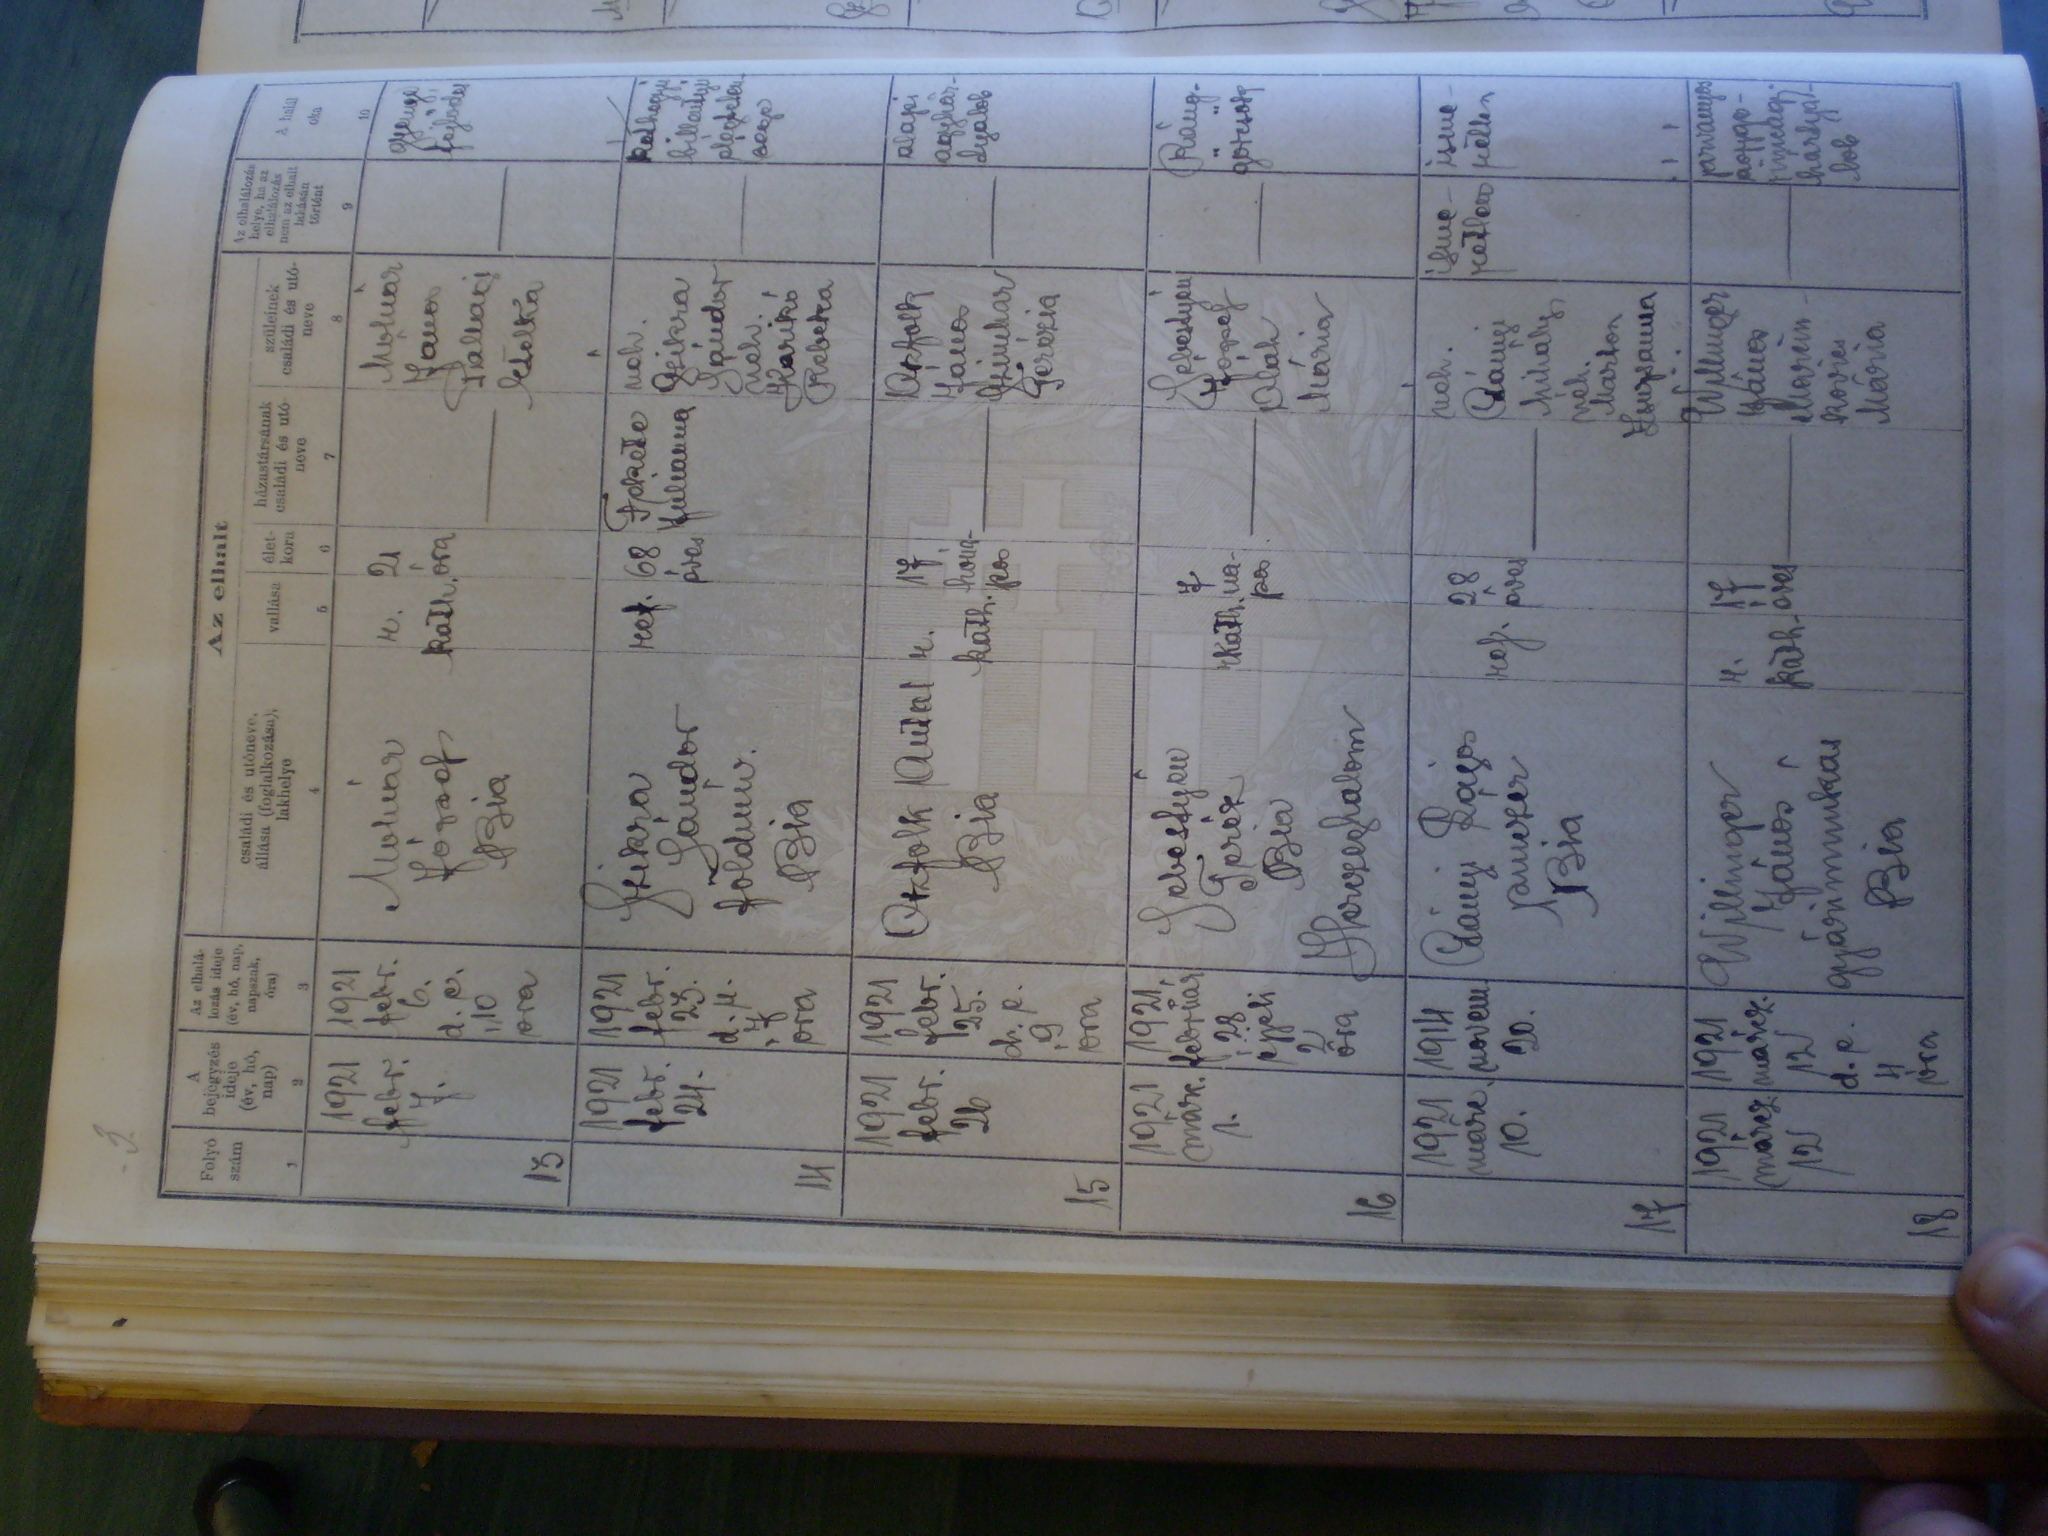 Az elhalt
Folyó
szám
A
bejegyzés
ideje
(év, hó,
nap)
Az elhalá-
lozás ideje
(év, hó, nap,
napszak,
óra)
családi és utóneve,
állása (foglalkozása),
lakhelye
vallása
élet-
kora
házastársának
családi és utó-
neve
szüleinek
családi és utó-
neve
Az elhalálozás
helye, ha az
elhalálozás
nem az elhalt
lakásán
történt
A halál
oka
1
2
3
4
5
6
7
8
9
10
13
1921
febr.
7.
1921
febr.
6.
d. e.
10
óra
Molnár
József
Bia
r.
kath.
21
óra
Molnár
János
Etelka
gyenge
14
1921
febr.
24.
1921
febr.
23.
d. u.
7
óra
Szikra
Sándor
földmiv.
Bia
ref.
68
éves
Fekete
Julianna
néh.
Szikra
Sándor
néh.
Harikó
Rebeka
15
1921
febr.
26
1921
febr.
25.
d. e.
9
óra
Oxfolk Antal
Bia
r.
kath.
17
hóna-
pos
Oxfolk
János
Terézia
alaki
agyhár-
tyalob
16
1921
márc.
1.
1921
február
28
éjjeli
2
óra
Sebestyén
Teréz
Bia
Herczeghalom
r. kath.
7
na-
pos
Sebestyén
József
Oláh
Mária
Ráng-
görcsök
17
1921
márc.
10.
1914
novem.
20.
Bia
ref.
28
éves
néh.
Mihály
néh.
Marton
Zsuzsanna
isme-
retlen
isme-
retlen
18
1921
márcz.
12
1921
márcz.
12
d. e.
4
óra
Willinger
János
gyárimunkás
Bia
r.
kath.
17
éves
Willinger
János
Mária